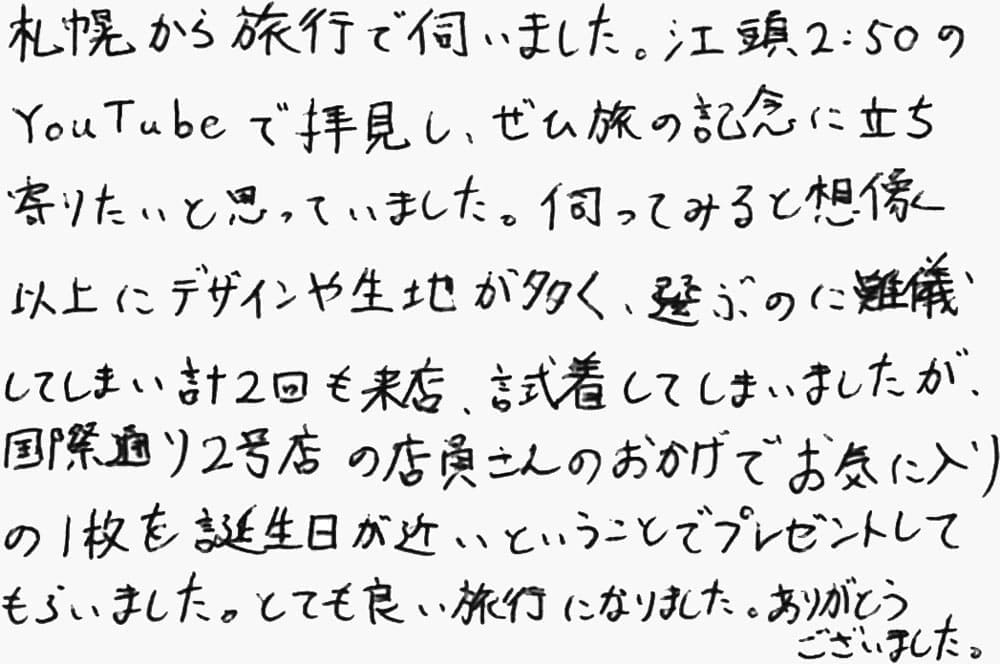 札幌から旅行で伺いました。江頭2:50の
YouTubeで拝見し、ぜひ旅の記念に立ち
寄りたいと思っていました。伺ってみると想像
以上にデザインや生地が多く、選ぶのに難儀
してしまい計2回も来店、試着してしまいましたが、
国際通り2号店の店員さんのおかげでお気に入り
の1枚を誕生日が近いということでプレゼントして
もらいました。とても良い旅行になりました。ありがとう
ございました。